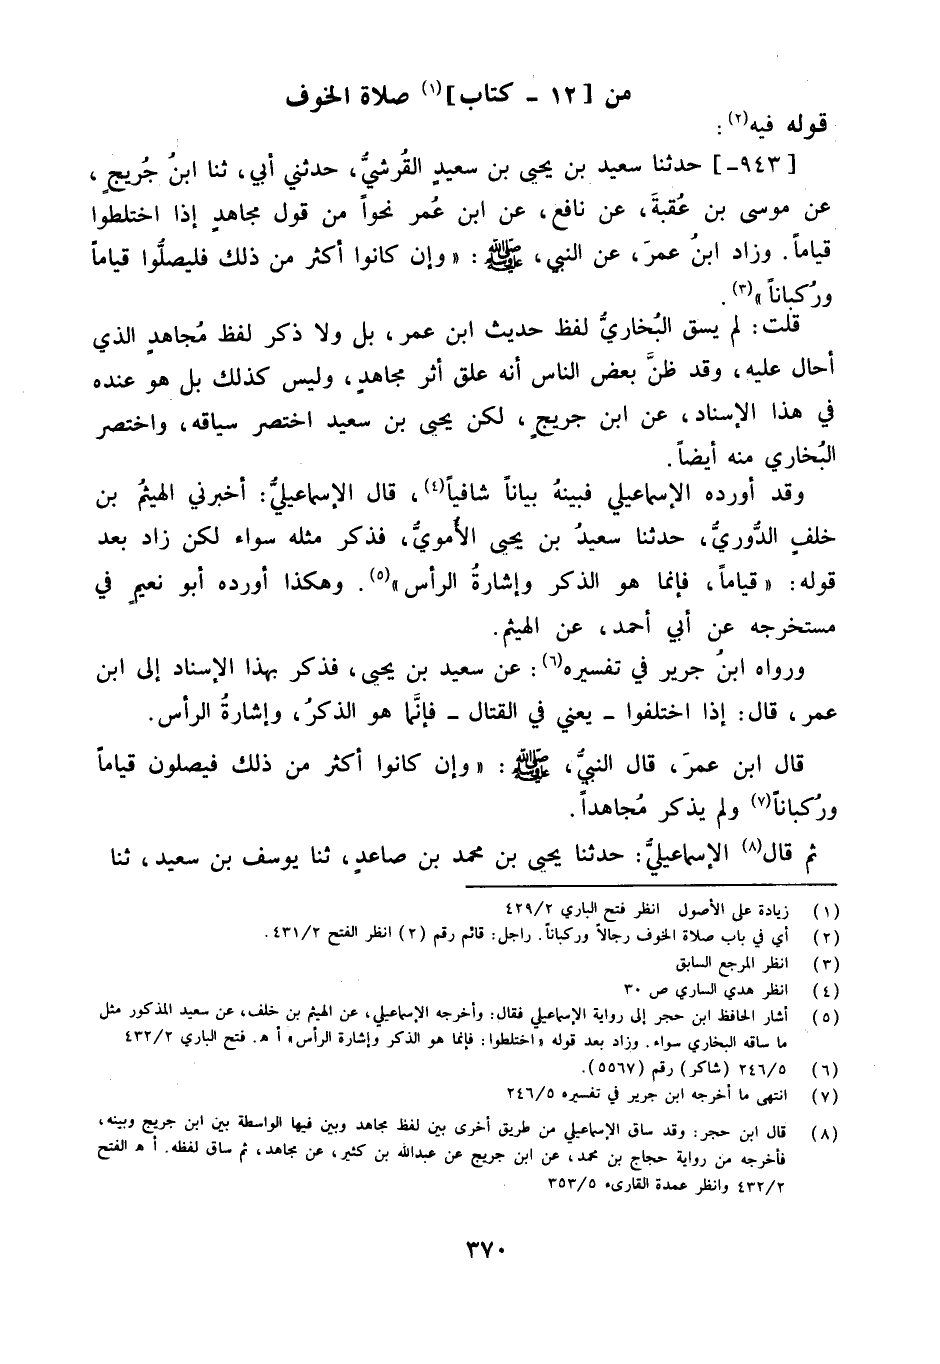 من [١٢ ـ كتاب](١) صلاة الخوف
قوله فيه(٢):
[٩٤٣ـ] حدثنا سعيد بن يحيى بن سعيدٍ القُرشيُّ، حدثني أبي، ثنا ابنُ جُريجٍ،
عن موسى بن عُقبةَ، عن نافع، عن ابن عُمر نحواً من قول مجاهدٍ إذا اختلطوا
قياماً. وزاد ابنُ عمرَ، عن النبي، ﷺ: «وإن كانوا أكثر من ذلك فليصلُّوا قياماً
ورُكباناً»(٣).
قلت: لم يسق البُخاريُّ لفظ حديث ابن عمر، بل ولا ذكر لفظ مُجاهدٍ الذي
أحال عليه، وقد ظنَّ بعض الناس أنه علق أثر مجاهدٍ، وليس كذلك بل هو عنده
في هذا الإسناد، عن ابن جريجٍ، لكن يحيى بن سعيد اختصر سياقه، واختصر
البُخاري منه أيضاً.
وقد أورده الإسماعيلي فبينهُ بياناً شافياً(٤)، قال الإسماعيليُّ: أخبرني الهيثمُ بن
خلفٍ الدُّوريُّ، حدثنا سعيدُ بن يحيى الأُمويُّ، فذكر مثله سواء لكن زاد بعد
قوله: «قياماً، فإنما هو الذكر وإشارةُ الرأس»(٥). وهكذا أورده أبو نعيمٍ في
مستخرجه عن أبي أحمد، عن الهيثم.
ورواه ابنُ جرير في تفسيره(٦): عن سعيد بن يحيى، فذكر بهذا الإسناد إلى ابن
عمر، قال: إذا اختلفوا ـ يعني في القتال ـ فإنَّما هو الذكرُ، وإشارةُ الرأس.
قال ابن عمرَ، قال النبيُّ، ﷺ: «وإن كانوا أكثر من ذلك فيصلون قياماً
ورُكباناً(٧) ولم يذكر مُجاهداً.
ثم قال(٨) الإسماعيليُّ: حدثنا يحيى بن محمد بن صاعدٍ، ثنا يوسف بن سعيد، ثنا
(١) زيادة على الأصول انظر فتح الباري ٤٢٩/٢
(٢) أي في باب صلاة الخوف رجالاً وركباناً. راجل: قائم رقم (٢) انظر الفتح ٤٣١/٢.
(٣) انظر المرجع السابق
(٤) انظر هدي الساري ص ٣٠
(٥) أشار الحافظ ابن حجر إلى رواية الإسماعيلي فقال: وأخرجه الإسماعيلي، عن الهيثم بن خلف، عن سعيد المذكور مثل
ما ساقه البخاري سواء. وزاد بعد قوله «اختلطوا: فإنما هو الذكر وإشارة الرأس» أ هـ. فتح الباري ٤٣٢/٢
(٦) ٢٤٦/٥ (شاكر) رقم (٥٥٦٧).
(٧) انتهى ما أخرجه ابن جرير في تفسيره ٢٤٦/٥
(٨) قال ابن حجر: وقد ساق الإسماعيلي من طريق أخرى بين لفظ مجاهد وبين فيها الواسطة بين ابن جريج وبينه،
فأخرجه من رواية حجاج بن محمد، عن ابن جريج عن عبدالله بن كثير، عن مجاهد، ثم ساق لفظه. أ هـ الفتح
٤٣٢/٢ وانظر عمدة القارىء ٣٥٣/٥
٣٧٠